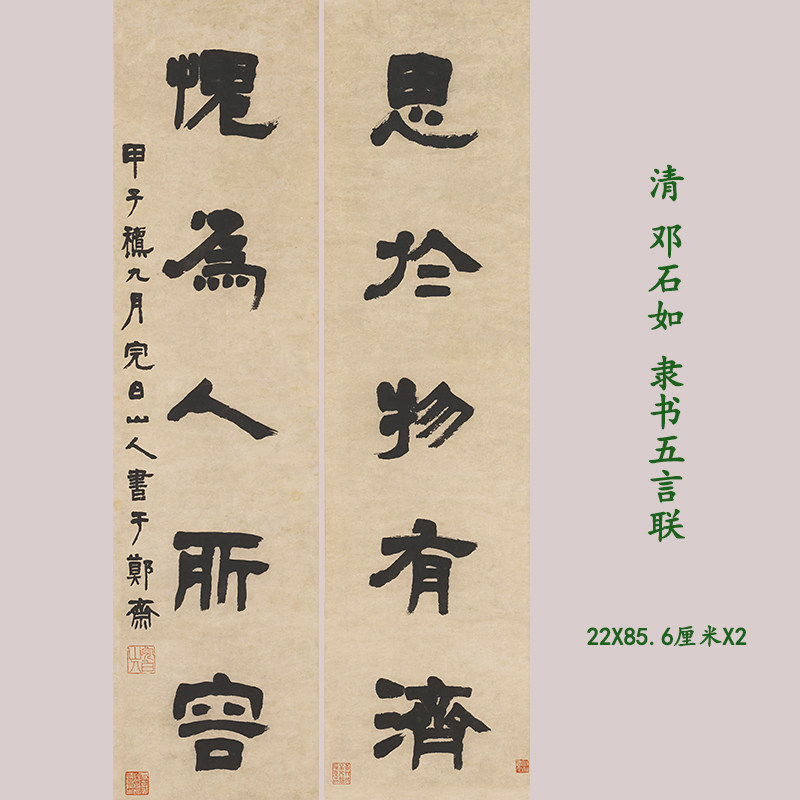 思於物有濟
愧為人所容
甲子九月完白山人書于鄭齋
清 邓石如 隶书五言联
22X85.6厘米X2